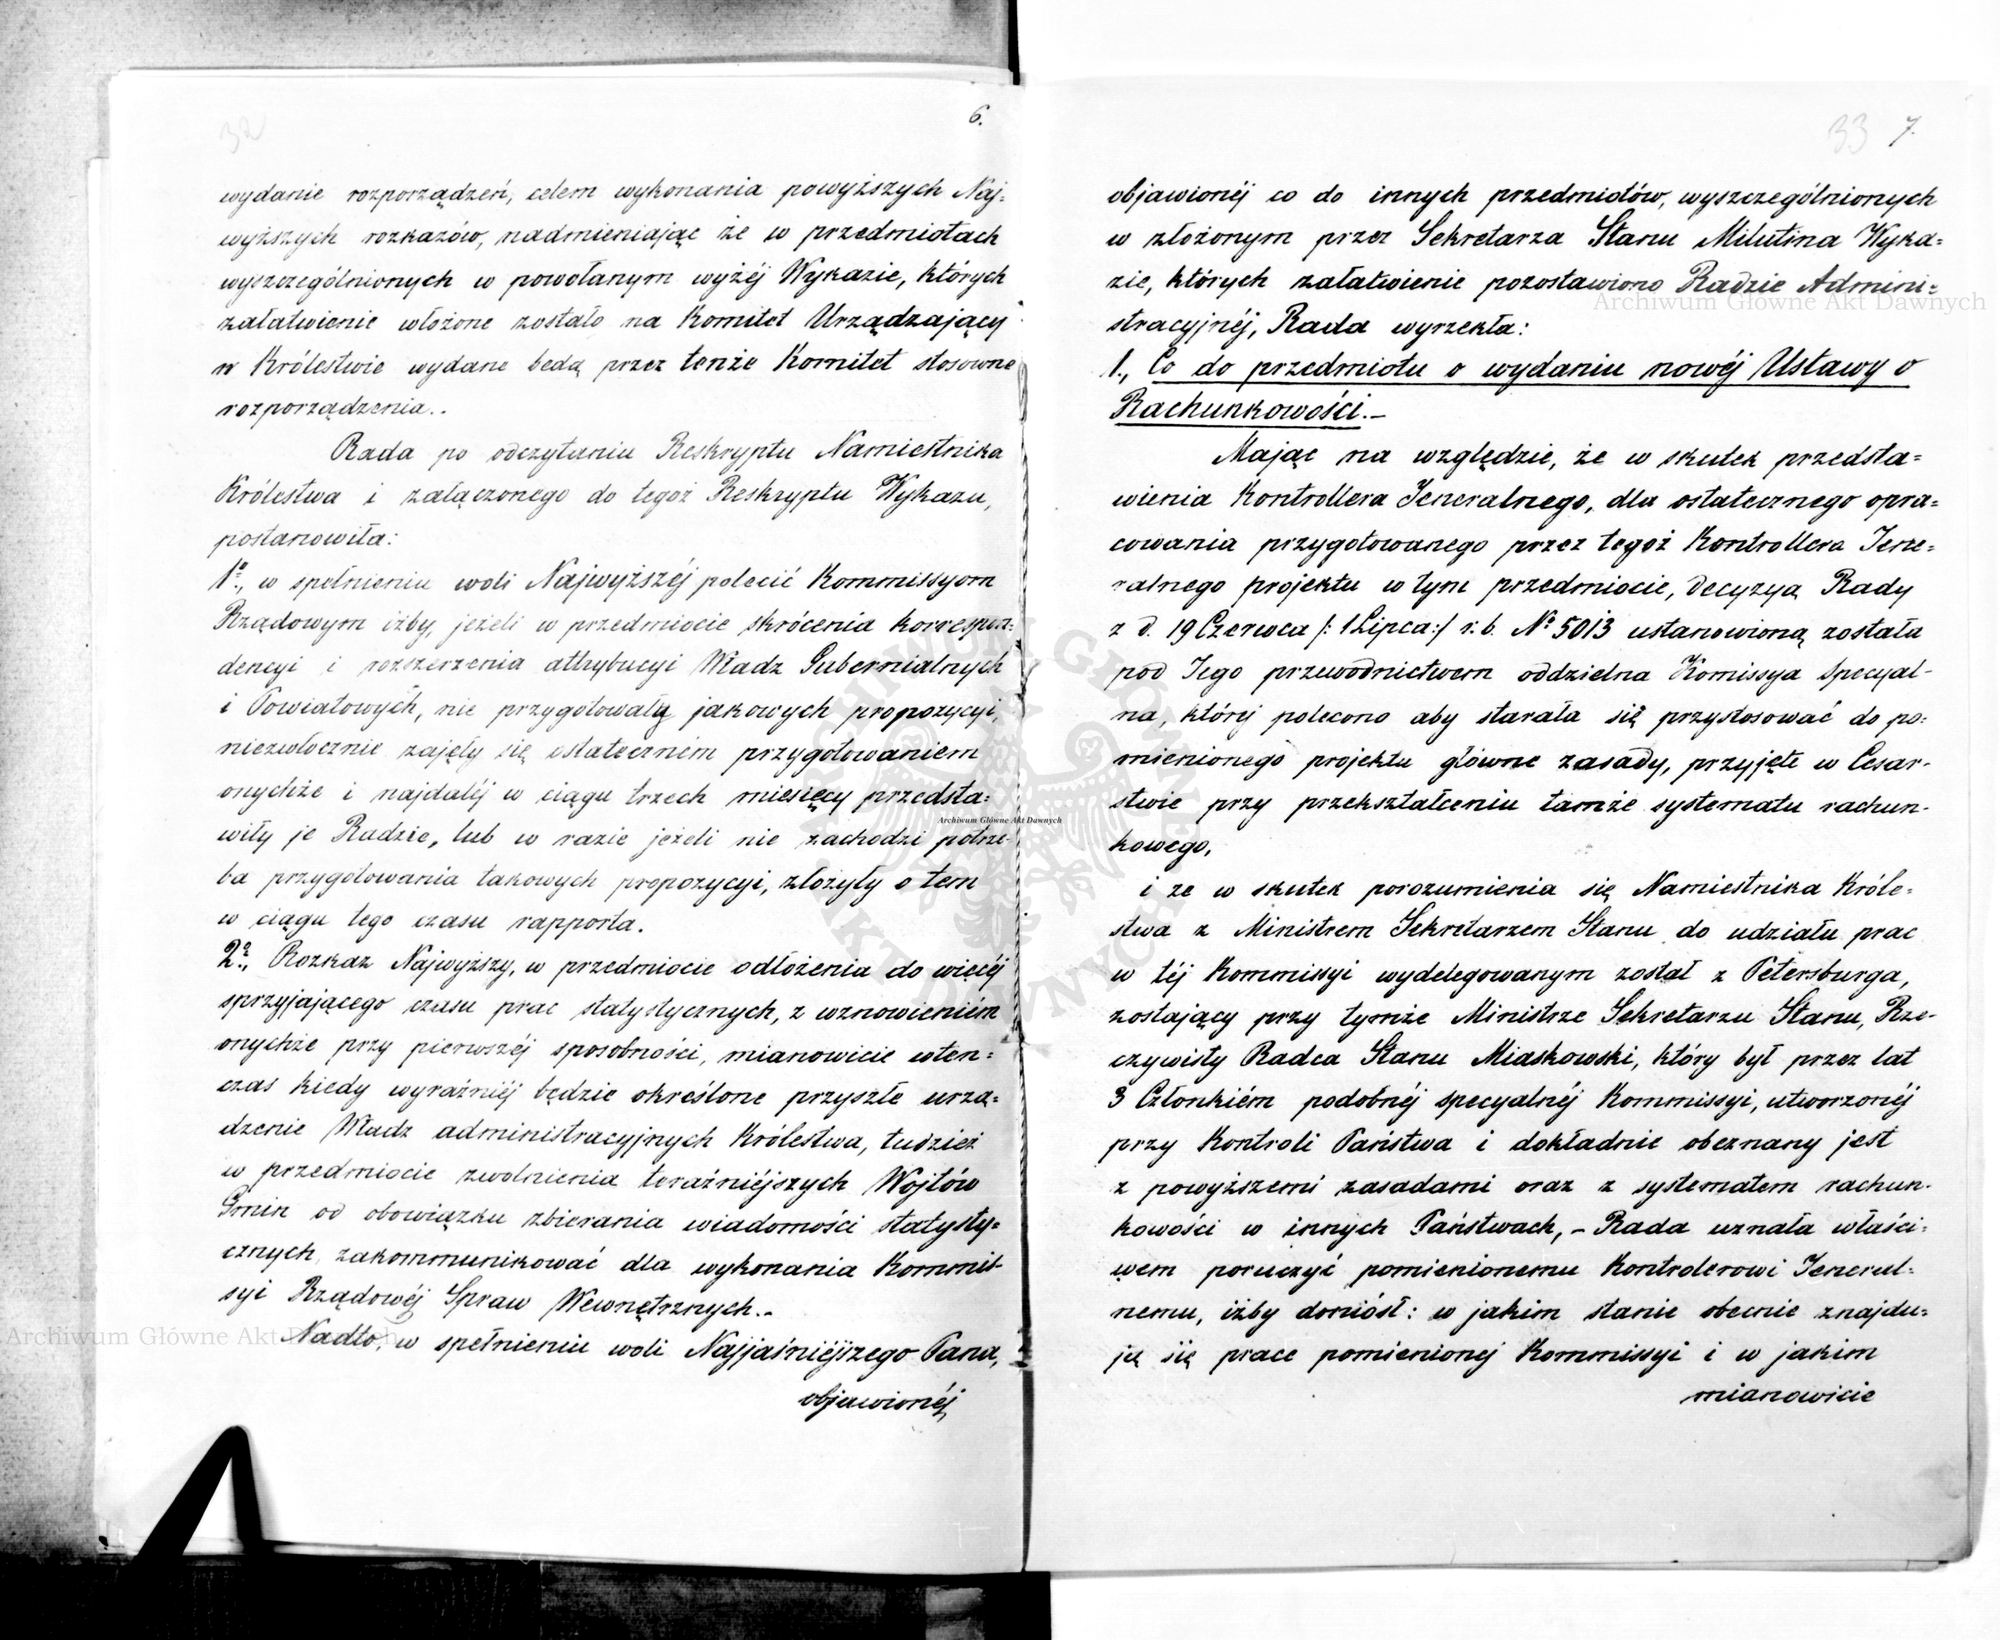 32
6.
wydanie rozporządzeń, celem wykonania powyższych Naj=
wyższych rozkazów, nadmieniając że w przedmiotach
wyszczególnionych w powołanym wyżéj Wykazie, których
załatwienie włożone zostało na Komitet Urządzający
w Królestwie wydane będą przez tenże Komitet stosowne
rozporządzenia..
Rada po odczytaniu Reskryptu Namiestnika
Królestwa i załączonego do tegoż Reskryptu Wykazu,
postanowiła:
1º, w spełnieniu woli Najwyższéj polecić Kommissyom
Rządowym iżby, jeżeli w przedmiocie skrócenia korrespon=
dencyi i rozszerzenia attrybucyi Władz Gubernialnych
i Powiatowych, nie przygotowały jakowych propozycyi,
niezwłocznie zajęły się ostateczném przygotowaniem
onychże i najdaléj w ciągu trzech miesięcy przedsta=
wiły je Radzie, lub w razie jeżeli nie zachodzi potrze=
ba przygotowania takowych propozycyi, złożyły o tem
w ciągu tego czasu rapporta.
2º, Rozkaz Najwyższy, w przedmiocie odłożenia do więcéj
sprzyjającego czasu prac statystycznych, z wznowieniém
onychże przy pierwszéj sposobności, mianowicie wten=
czas kiedy wyraźniéj będzie określone przyszłe urzą=
dzenie Władz administracyjnych Królestwa, tudzież
w przedmiocie zwolnienia teraźniéjszych Wójtów
Gmin od obowiązku zbierania wiadomości statysty=
cznych, zakommunikować dla wykonania Kommis=
syi Rządowéj Spraw Wewnętrznych.-
Nadto, w spełnieniu woli Najjaśniéjszego Pana,
objawionéj
33
7.
objawionéj co do innych przedmiotów, wyszczególnionych
w złożonym przez Sekretarza Stanu Milutina Wyka=
zie, których załatwienie pozostawiono Radzie Admini=
stracyjnéj, Rada wyrzekła:
1., Co do przedmiotu o wydaniu nowéj Ustawy o
Rachunkowości.-
Mając na względzie, że w skutek przedsta=
wienia Kontrollera Jeneralnego, dla ostatecznego opra=
cowania przygotowanego przez tegoż Kontrollera Jene=
ralnego projektu w tym przedmiocie, Decyzyą Rady
z d. 19 Czerwca /: 1 Lipca:/ r. b. Nº 5013 ustanowioną została
pod Jego przewodnictwem oddzielna Komissya specyal-
na, której polecono aby starała się przystosować do po=
mienionego projektu główne zasady, przyjęte w Cesar-
stwie przy przekształceniu tamże systematu rachun-
kowego,
i że w skutek porozumienia się Namiestnika Króle=
stwa z Ministrem Sekretarzem Stanu do udziału prac
w téj Kommissyi wydelegowanym został z Petersburga,
zostający przy tymże Ministrze Sekretarzu Stanu, Rze-
czywisty Radca Stanu Miaskowski, który był przez lat
3 Członkiém podobnéj specyalnéj Kommissyi, utworzonéj
przy Kontroli Państwa i dokładnie obeznany jest
z powyższemi zasadami oraz z systematem rachun-
kowości w innych Państwach, - Rada uznała właści=
wem poruczyć pomienionemu Kontrolerowi Jeneral=
nemu, iżby doniósł: w jakim stanie obecnie znajdu=
ją się prace pomienionej Kommissyi i w jakim
mianowicie
Archiwum Główne Akt Dawnych
Archiwum Główne Akt Dawnych
Archiwum Główne Akt Dawnych
ARCHIWUM GŁÓWNE
AKT DAWNYCH